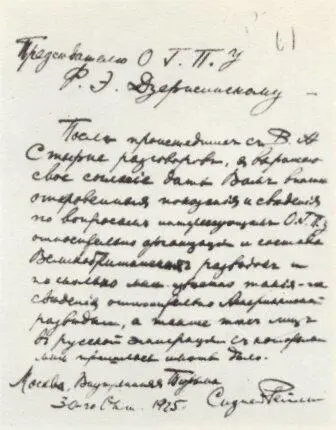 61
Председателю О Г. П. У
Ф. Э. Дзержинскому
После происшедших съ В. А
Стырне разговоров, я выражаю
свое согласие дать Вамъ вполне
откровенныя показания и сведения
по вопросамъ интересующим О.Г.П.У
относительно организации и состава
Великобританской разведки и
по сколько мне известно такія-же
сведения относительно Американской
разведки, а также тех лицъ
въ русской эмиграции с которыми
мне пришлось иметь дело.
Москва, Внутренняя Тюрьма
30го Окт. 1925. Сидней Рейли